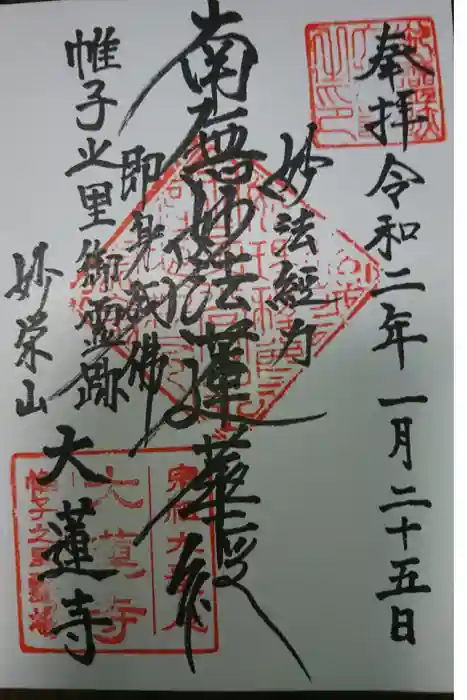 奉拝 令和二年 一月 二十五日
妙法經力
南無妙法蓮華経
即身成佛
帷子之里御霊跡
妙栄山
大蓮寺
大蓮寺